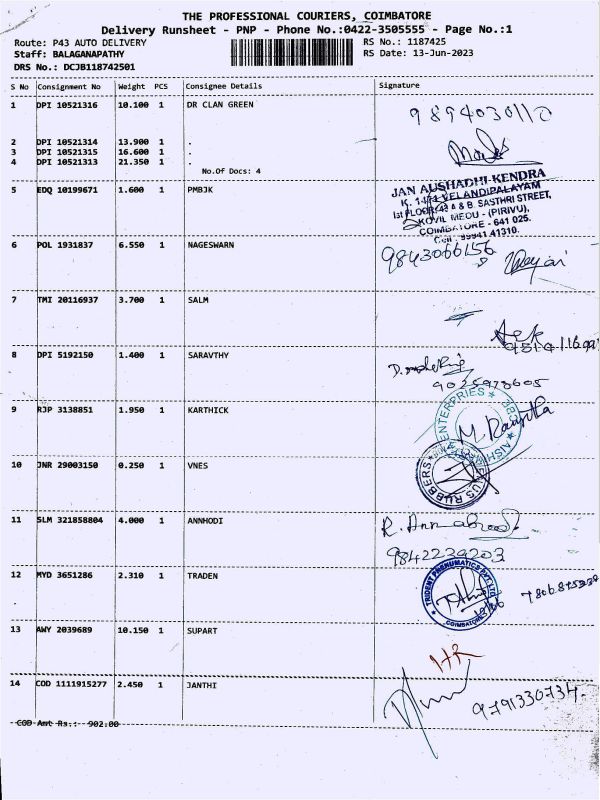 THE PROFESSIONAL COURIERS, COIMBATORE
Delivery Runsheet - PNP - Phone No.:0422-3505555 - Page No.:1
Route: P43 AUTO DELIVERY RS No.: 1187425
Staff: BALAGANAPATHY RS Date: 13-Jun-2023
DRS No.: DCJB118742501
S No Consignment No Weight PCS Consignee Details Signature
1 DPI 10521316 10.100 1 DR CLAN GREEN 9894030110
2 DPI 10521314 13.900 1 .
3 DPI 10521315 16.600 1 .
4 DPI 10521313 21.350 1 .
No.Of Docs: 4
JAN AUSHADHI KENDRA
5 EDQ 10199671 1.600 1 PMBJK
VELANDIPALAYAM
1st FLOOR, & B. SASTHRI STREET,
KOVIL MEDU - (PIRIVU),
COIMBATORE - 641 025.
Cell : 99941 41310.
6 POL 1931837 6.550 1 NAGESWARN 9843066156
7 TMI 20116937 3.700 1 SALM
8 DPI 5192150 1.400 1 SARAVTHY
9025978605
9 RJP 3138851 1.950 1 KARTHICK
ENTERPRISES ★ CBE ★
10 JNR 29003150 0.250 1 VNES
RUBBERS
11 SLM 321858804 4.000 1 ANNHODI R.
9842239203
12 MYD 3651286 2.310 1 TRADEN
TRIDENT PNEUMATICS PVT LTD
COIMBATORE
13 AWY 2039689 10.150 1 SUPART
HR
14 COD 1111915277 2.450 1 JANTHI 9791330734
COD Amt Rs.: 902.00